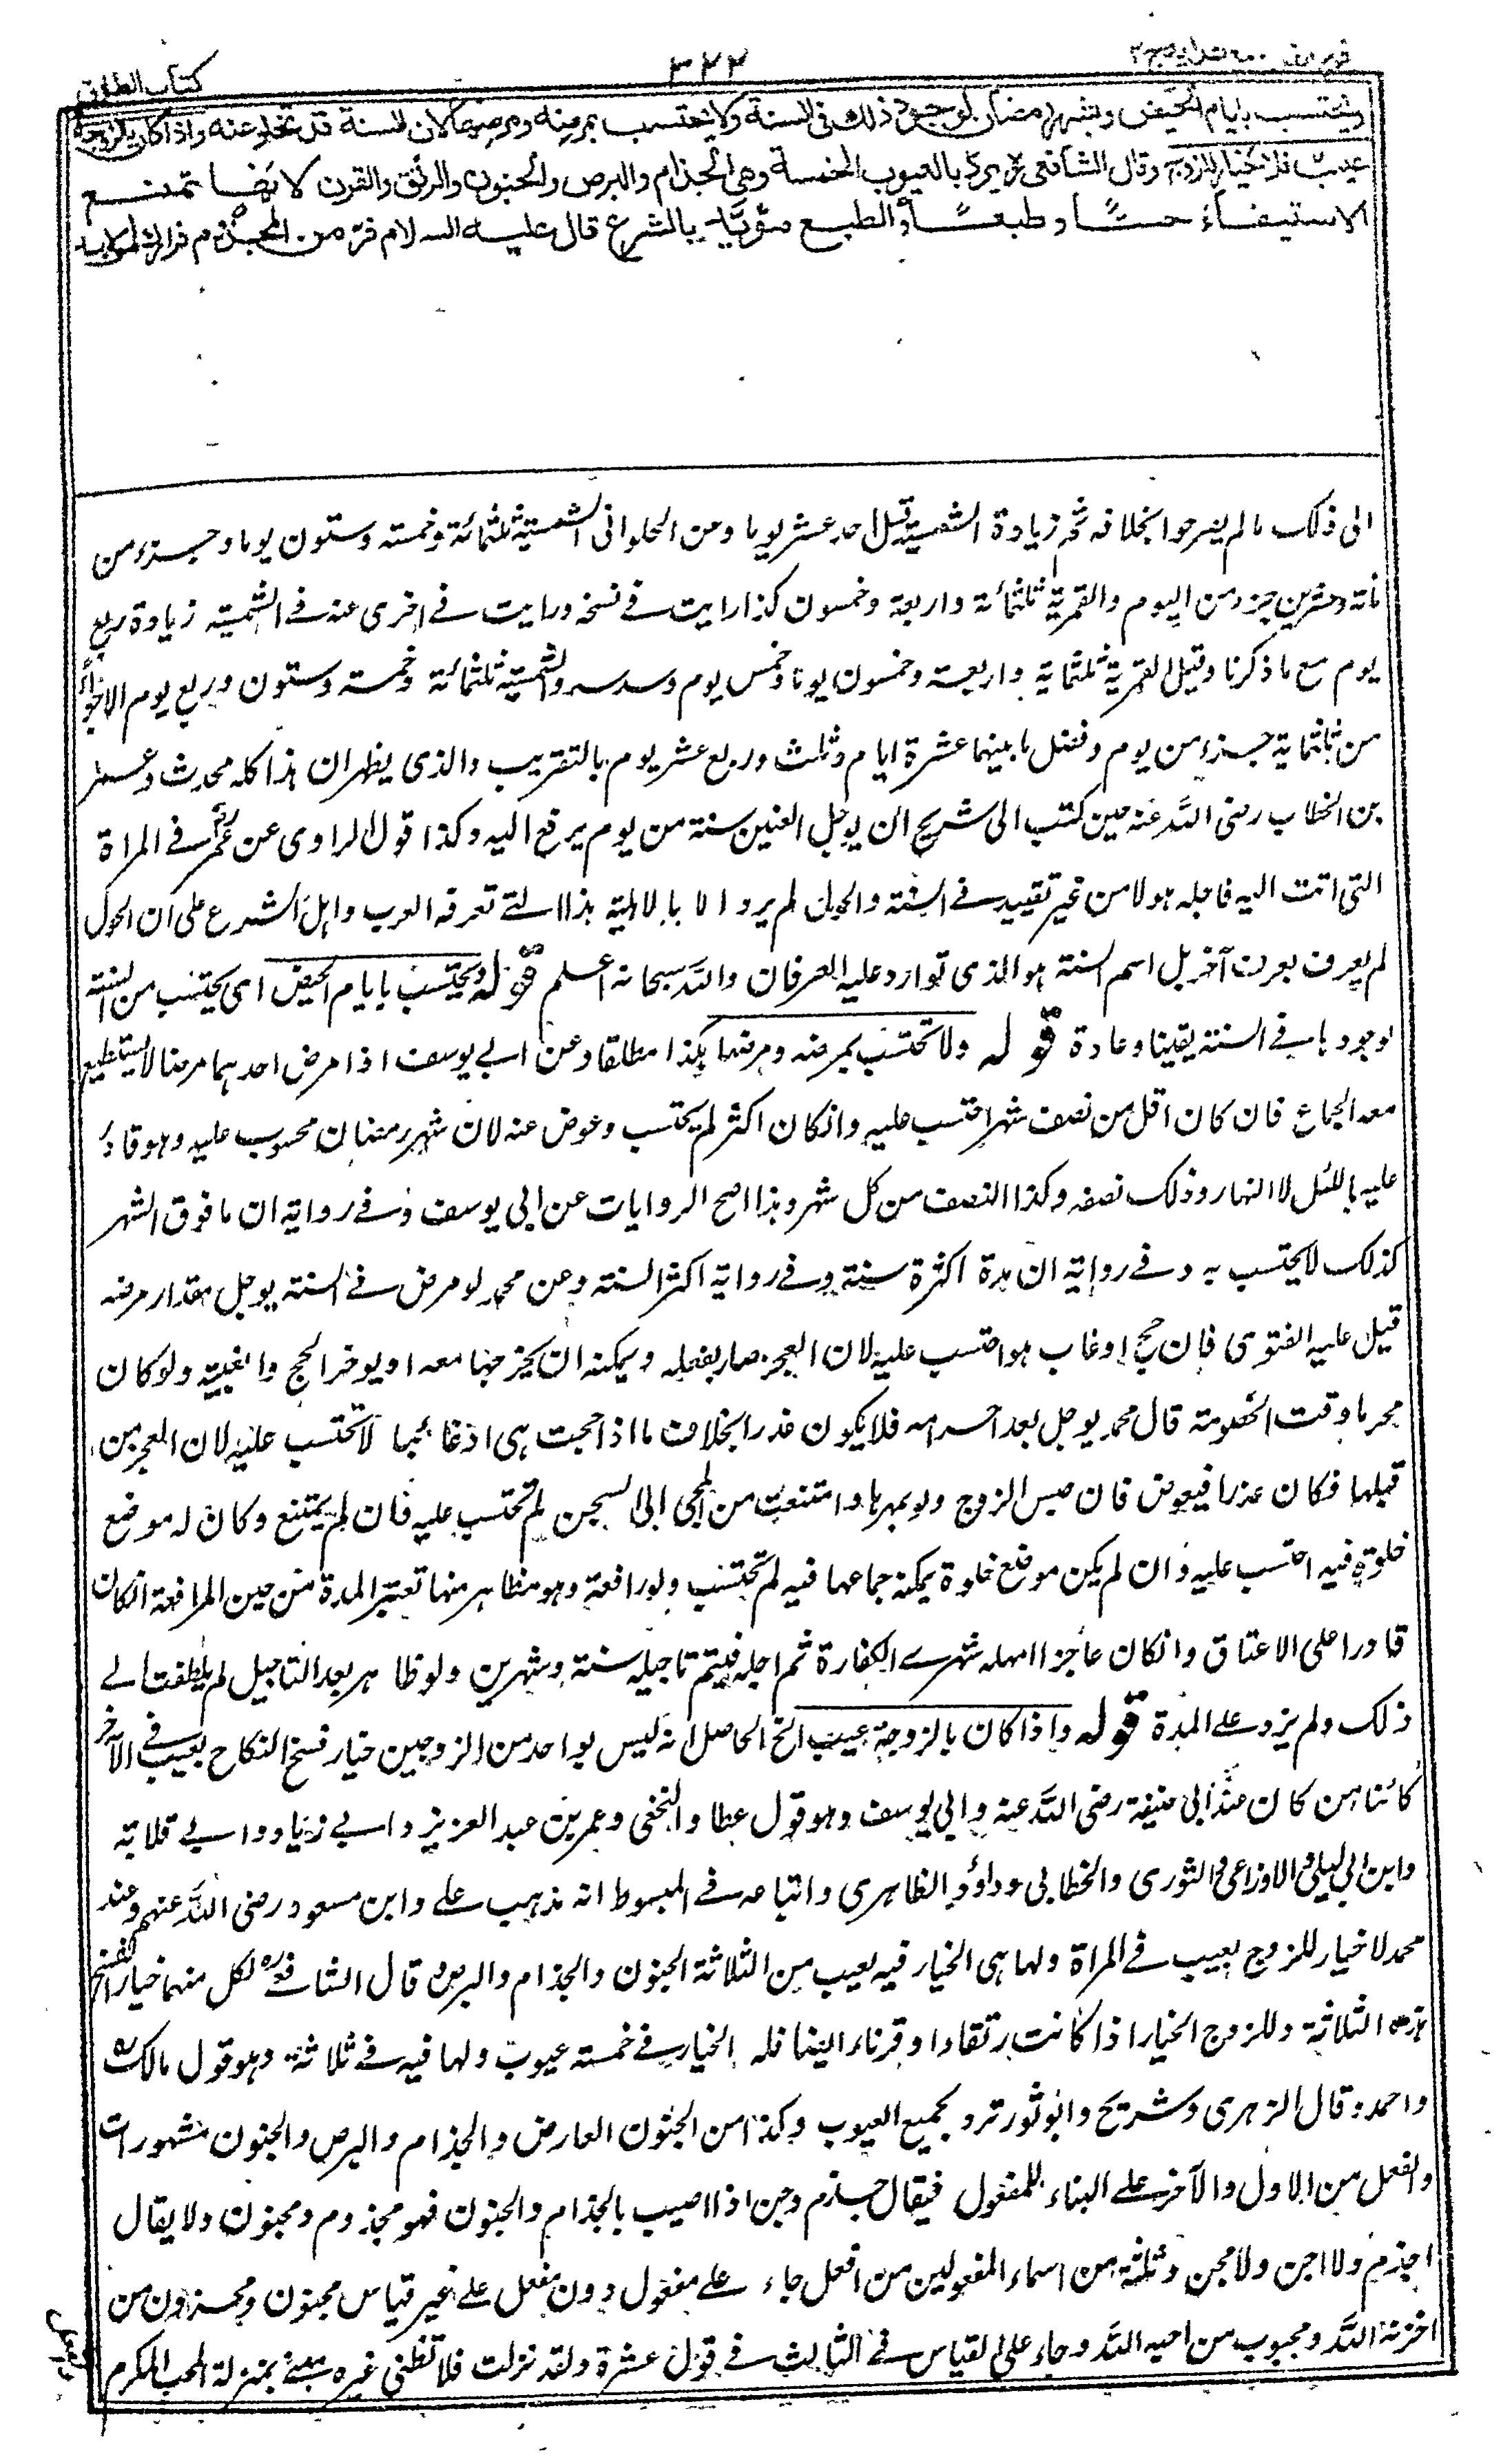 ٣٢٢
كتاب الطلاق
ويحتسب بايام الحيض وبشهر رمضان لوجود ذلك فى السنة ولا يحتسب بمرضه ومرضها لان السنة قد تخلو عنه واذا كان بالزوجة
عيب فلا خيار للزوج وقال الشافعى يرد بالعيوب الخمسة وهى الجذام والبرص والجنون والرتق والقرن لانها تمنع
الاستيفاء حسًّا وطبعًا والطبع مؤيد بالشرع قال عليه السلام فر من المجذوم فرارك
الى ذلك ما لم يصرحوا بخلافه ثم زيادة الشمسية قيل احد عشر يوما وعن الحلوانى الشمسية ثلثمائة وخمسة وستون يوما وجزء من
مائة وعشرين جزء من اليوم والقمرية ثلثمائة واربعة وخمسون كذا رايت فى نسخة ورايت فى اخرى عنه فى الشمسية زيادة ربع
يوم مع ما ذكرنا وقيل القمرية ثلثماية واربعة وخمسون يوما وخمس يوم وسدسه والشمسية ثلثمائة وخمسة وستون وربع يوم الا جزأ
من ثلثماية جزء من يوم وفضل ما بينهما عشرة ايام وثلث وربع عشر يوم بالتقريب والذى يظهر ان هذا كله محدث وعمر
بن الخطاب رضى الله عنه حين كتب الى شريح ان يوجل العنين سنة من يوم يرفع اليه وكذا قول الراوى عن عمر فى المراة
التى اتت اليه فاجله حولا من غير تقييد فى السنة والحول لم يرد الا بالاهلية هذا التے تعرفه العرب واهل الشرع على ان الحول
لم يعرف بعرف آخر بل اسم السنة هو الذى توارد عليه العرفان والله سبحانه اعلم قوله ويحتسب بايام الحيض اى يحتسب من السنة
لوجودها فى السنة يقينا وعادة قوله ولا يحتسب بمرضه ومرضها هكذا مطلقا وعن ابى يوسف اذا مرض احدهما مرضا لا يستطيع
معه الجماع فان كان اقل من نصف شهر احتسب عليه وانكان اكثر لم يحتسب وعوض عنه لان شهر رمضان محسوب عليه وهو قادر
عليه بالليل لا النهار وذلك نصفه وكذا النصف من كل شهر وهذا اصح الروايات عن ابى يوسف وفى رواية ان ما فوق الشهر
كذلك لا يحتسب به وفى رواية ان مدة اكثرة سنة وفى رواية اكثر السنة وعن محمد لو مرض فى السنة يوجل مقدار مرضه
قيل عليه الفتوى فان حج او غاب هو احتسب عليه لان العجز صار بفعله ويمكنه ان يخرجها معه او يوخر الحج والغيبة ولو كان
محرما وقت الخصومة قال محمد يوجل بعد احرامه فلا يكون عذرا بخلاف ما اذا حجت هى او غابت لا تحتسب عليه لان العجز من
قبلها فكان عذرا فيعوض فان حبس الزوج ولو بمهرها وامتنعت من المجى الى السجن لم تحتسب عليه فان لم يمتنع وكان له موضع
خلوة فيه احتسب عليه وان لم يكن موضع خلوة يمكنه جماعها فيه لم تحتسب ولو رافعته وهو مظاهر منها تعتبر المدة من حين المرافعة انكان
قادرا على الاعتاق وانكان عاجزا امهله شهرى الكفارة ثم اجله فيتم تاجيله سنة وشهرين ولو ظاهر بعد التاجيل لم يلتفت الى
ذلك ولم يزد على المدة قوله واذا كان بالزوجة عيب الخ الحاصل انه ليس لواحد من الزوجين خيار فسخ النكاح بعيب فى الآخر
كائنا من كان عند ابى حنيفة رضى الله عنه وابى يوسف وهو قول عطا والنخعى وعمر بن عبد العزيز وابى زياد وابى قلابة
وابن ابى ليلى والاوزاعى والثورى والخطابى وداؤد الظاهرى واتباعه فى المبسوط انه مذهب على وابن مسعود رضى الله عنهم وعند
محمد لا خيار للزوج بعيب فى المراة ولها هى الخيار فيه بعيب من الثلاثة الجنون والجذام والبرص وقال الشافعى لكل منهما خيار الفسخ
هذه الثلاثة وللزوج الخيار اذا كانت رتقاء او قرناء ايضا فله الخيار فى خمسة عيوب ولها فيه فى ثلاثة وهو قول مالك
واحمد وقال الزهرى وشريح وابو ثور ترد بجميع العيوب وكذا من الجنون العارض والجذام والبرص والجنون مشهورات
والفعل من الاول والآخر على البناء للمفعول فيقال جذم وجن اذا اصيب بالجذام والجنون فهو مجذوم ومجنون ولا يقال
اجذم ولا اجن ولا مجن وثلثة من اسماء المفعولين من افعل جاء على مفعول دون مفعل على غير قياس مجنون ومحزون من
احزنه الله ومحبوب من احبه الله وجاء على القياس فى الثالث فى قول عنترة ولقد نزلت فلا تظنى غيره منى بمنزلة المحب المكرم